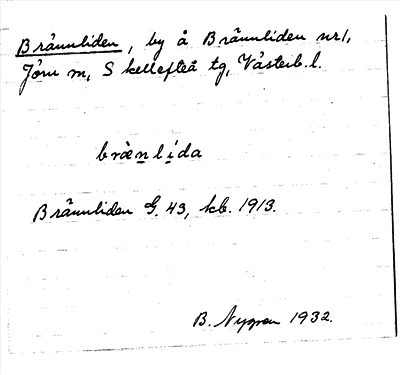 Brännliden, by å Brännliden nr 1,
Jörn sn, Skellefteå tg, Västerb. l.
bræ̀nlìda
Brännliden G. 43, kb. 1913.
B. Nygren 1932.